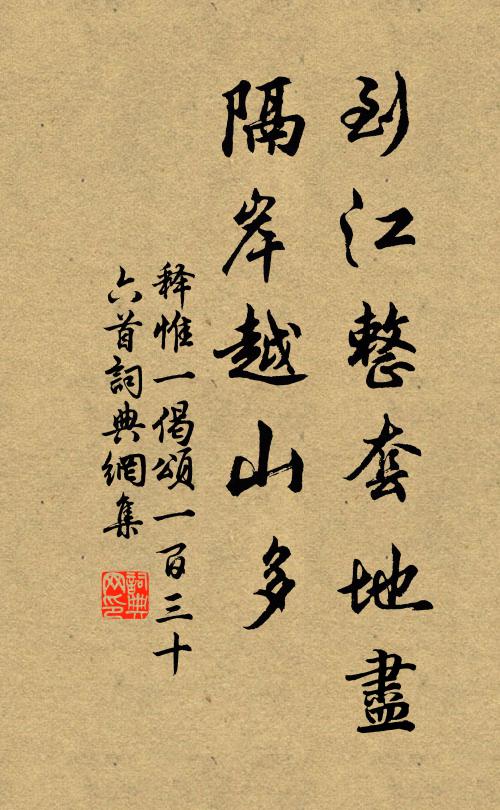 到江整套地盡
隔岸越山多
释惟一偈頌一百三十
六首詞典網集
詞典
网印